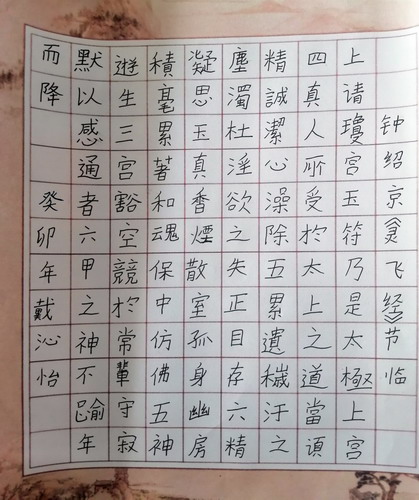 钟绍京《灵飞经》节临
上请瓊宫玉符乃是太極上宫
四真人所受於太上之道當須
精誠潔心澡除五累遺穢汙之
塵濁杜淫欲之失正目存六精
凝思玉真香煙散室孤身幽房
積毫累著和魂保中仿佛五神
遊生三宫豁空競於常輩守寂
默以感通者六甲之神不踰年
而降 癸卯年戴沁怡